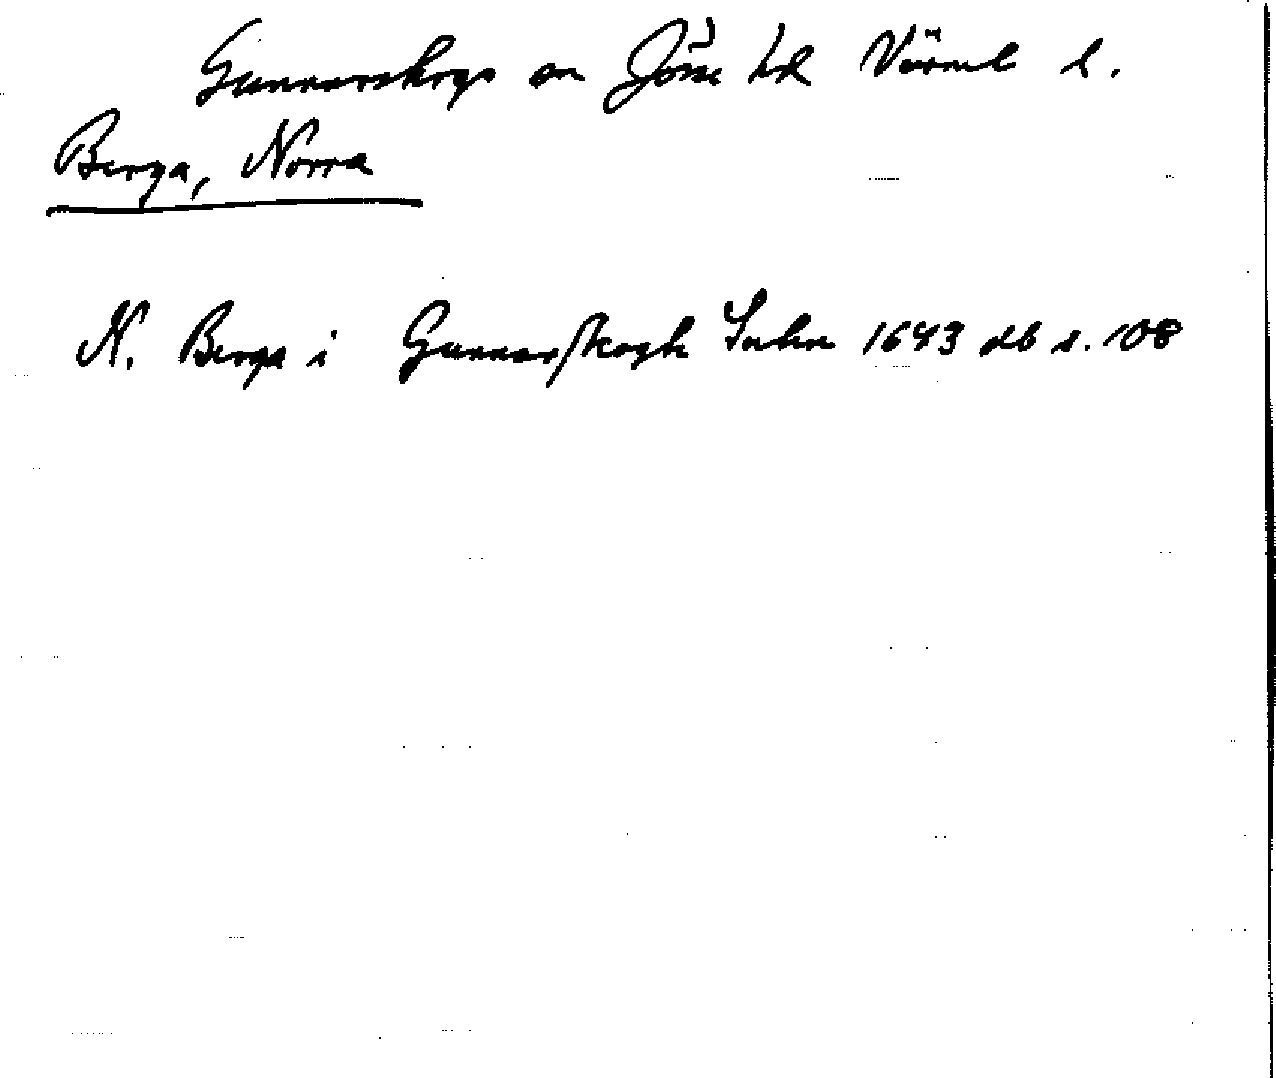 Gunnarskogs sn Jösse hd Värml l.
Berga, Norra
N. Berga i Gunnarskogh Sokn 1643 db s. 108